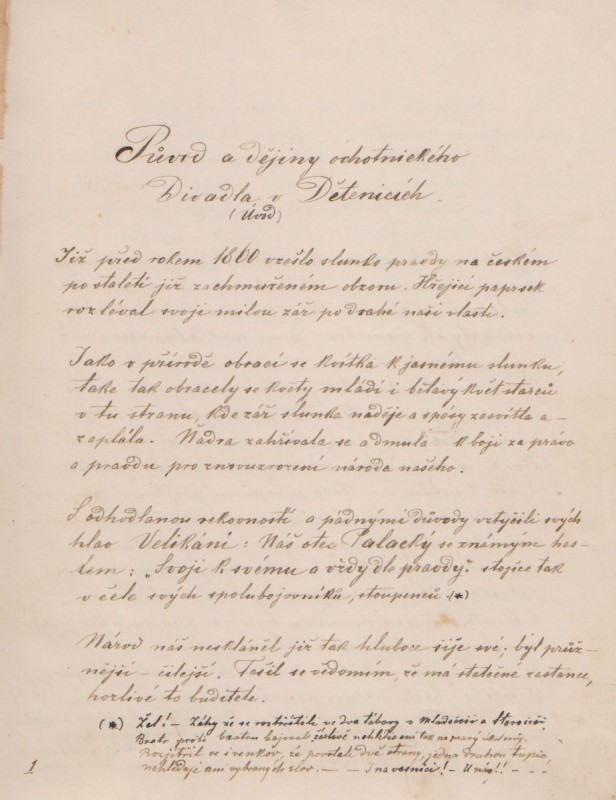 Původ a dějiny ochotnického
Divadla v Dětenicích.
(Úvod)
Již před rokem 1860 vzešlo slunko pravdy na českém
po staletí již zachmuřeném obzoru. Hřející paprsek
rozléval svoji milou zář po drahé naší vlasti.
Jako v přírodě obrací se kvítka k jasnému slunku,
take tak obracely se květy mládí i bělavý květ starců
v tu stranu, kde zář slunka naděje a spásy zasvitla a -
zaplála. Ňádra zahřívala se a dmula k boji za právo
a pravdu pro znovuzrození národa našeho.
S odhodlanou rekovností a pádnými důvody vztyčili svých
hlav Velikáni: Náš otec Palacký se známým hes-
lem: „Svoji k svému a vždy dle pravdy." stojíce tak
v čele svých spolubojovníků, stoupenců (*)
Národ náš neskláněl již tak hluboce šíje své; byl pruž-
nější - čilejší. Těšil se vědomím, že má statečné zastance,
horlivé to buditele.
(*) Žel! - Záhy že se roztříštili ve dva tábory v Mladočechů a Staročechů.
Bratr proti bratru bojoval žárlivě nehledě ani na
venkov, že povstali dvě strany, jedna druhou tupíc
nehledají ani vybraných slov. - - I na vesnici! - U nás!! - - !
1